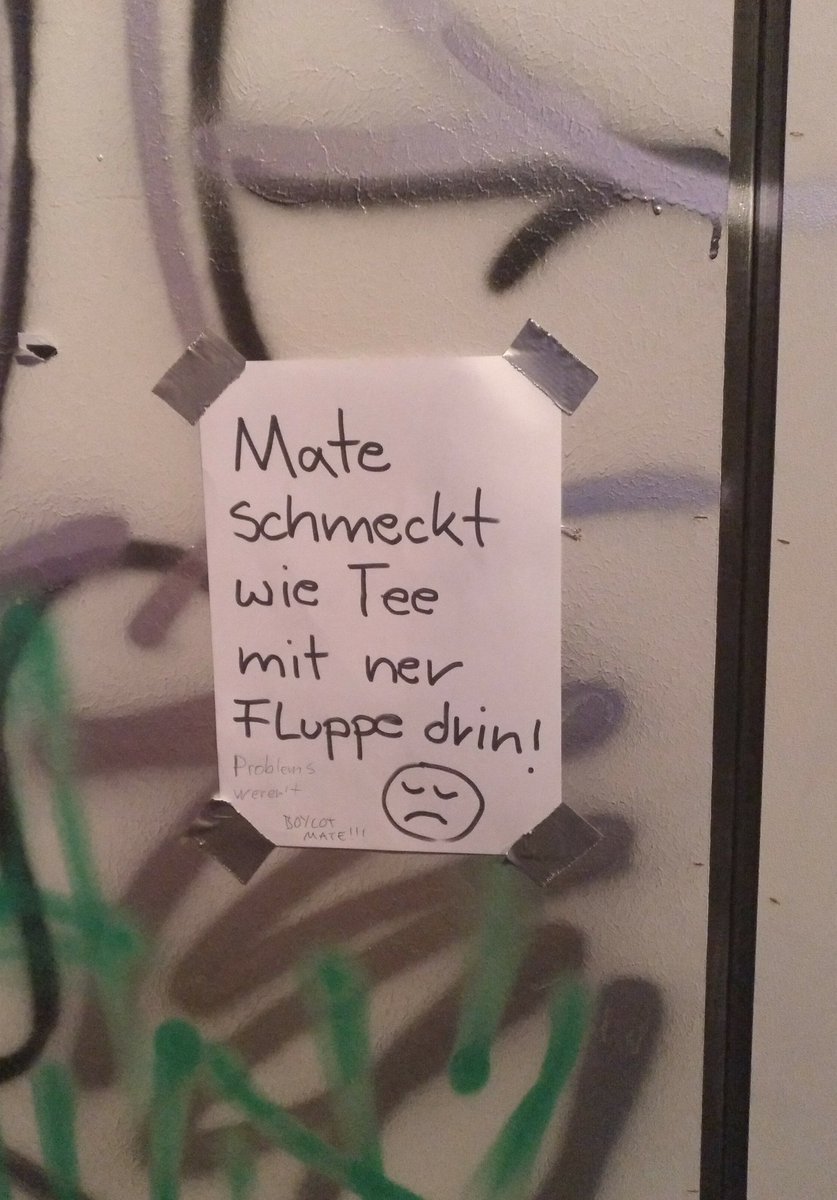 Mate
schmeckt
wie Tee
mit ner
Fluppe drin!
Problems
weren't
BOYCOT
MATE!!!